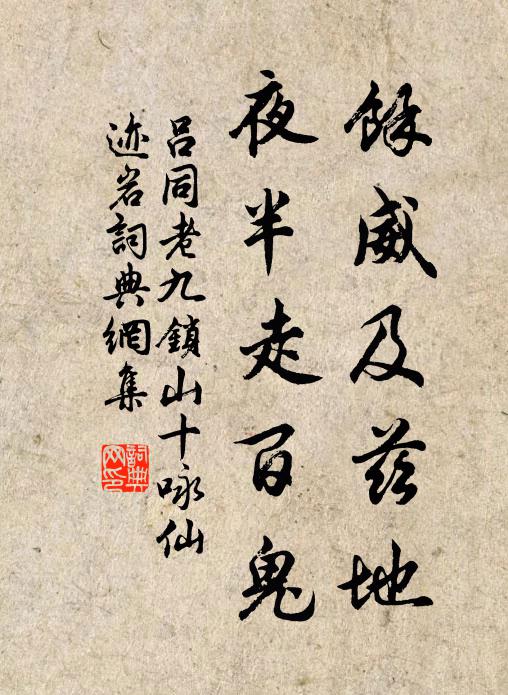 餘威及茲地
夜半走百鬼
吕同老九鎖山十咏仙
迹岩詞典網集
詞典
网印